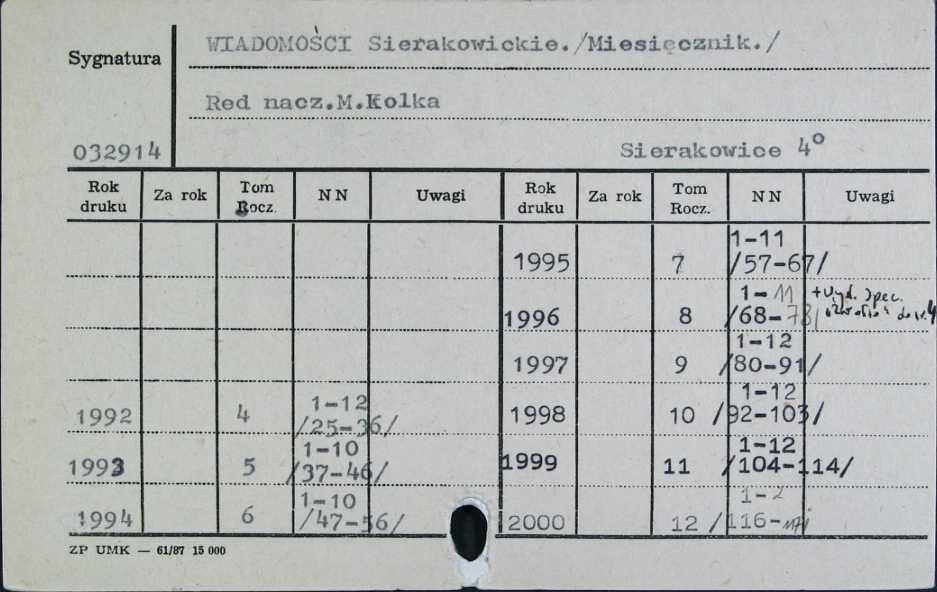 WIADOMOŚCI Sierakowickie./Miesięcznik./
Sygnatura
Red nacz.M.Kolka
032914
Sierakowice 4°
Rok druku Za rok Tom Rocz. NN Uwagi Rok druku Za rok Tom Rocz. NN Uwagi
1995 7 1-11 /57-67/
1996 8 1-11 /68-78/ + Wyd. Spec.
1997 9 1-12 /80-91/
1992 4 1-12 /25-36/ 1998 10 1-12 /92-103/
1993 5 1-10 /37-46/ 1999 11 1-12 /104-114/
1994 6 1-10 /47-56/ 2000 12 1-2 /116-117/
ZP UMK — 61/87 15 000